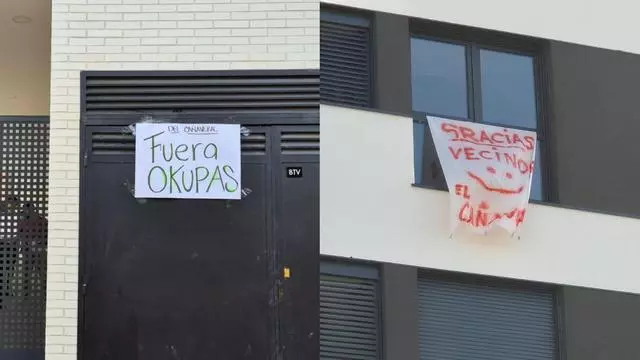 DEL CAÑAVERAL
Fuera
OKUPAS
BTV
GRACIAS
VECINOS
EL
CAÑAVE